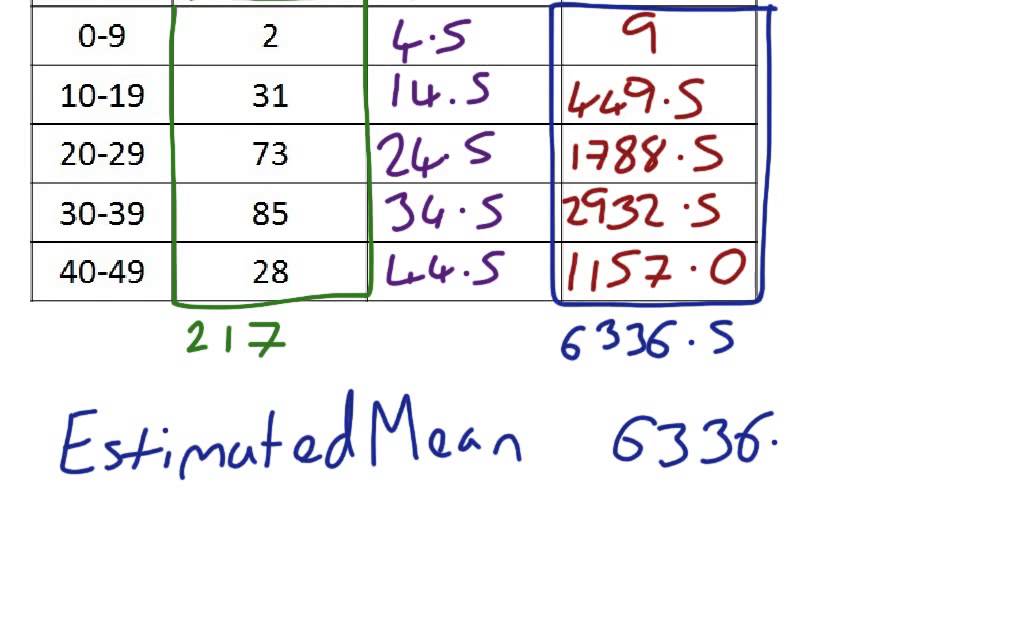 0-9 2 4.5 9
10-19 31 14.5 449.5
20-29 73 24.5 1788.5
30-39 85 34.5 2932.5
40-49 28 44.5 1157.0
217 6336.5
Estimated Mean 6336.